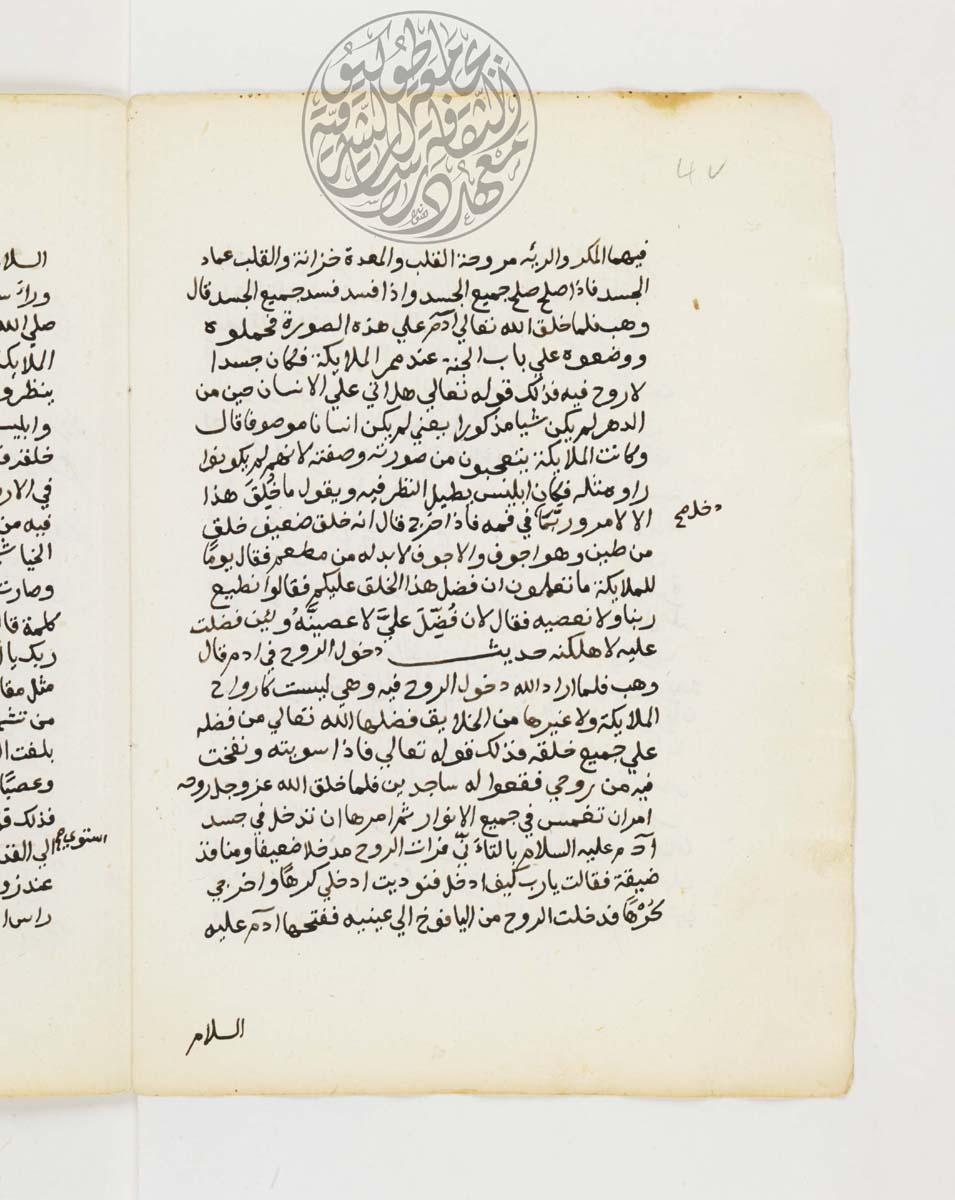 ٤٧
فيهما المكر والريه مروحة القلب والمعدة خزانة والقلب عماد
الجسد فاذا صلح صلح جميع الجسد واذا فسد فسد جميع الجسد قال
وهب فلما خلق الله تعالي ادم علي هذه الصورة فحملوه
ووضعوه علي باب الجنة عند ممر الملايكة فكان جسدا
لا روح فيه فذلك قوله تعالي هل اتي علي الانسان حين من
الدهر لم يكن شيا مذكورا يعني لم يكن انسانا موصوفا قال
وكانت الملايكة يتعجبون من صورته وصفته لانهم لم يكونوا
راوه مثله فكان ابليس يطيل النظر فيه ويقول ما خُلِقَ هذا
الا لامر وربّما في فمه فاذا خرج قال انه خلق ضعيف خلق
دخل صح
من طين وهو اجوف والاجوف لا بد له من مطعم فقال يومًا
للملايكة ما تعملون ان فضل هذا الخلق عليكم فقالوا نطيع
ربنا ولا نعصيه فقال لان فُضِّلَ عليَّ لاعصينَّهُ ولئن فضلت
عليه لاهلكنه حديث دخول الروح في ادم قال
وهب فلما اراد الله دخول الروح فيه وهي ليست كارواح
الملايكة ولا غيرها من الخلايق فضلها الله تعالي من فضله
علي جميع خلقه فذلك قوله تعالي فاذا سويته ونفخت
فيه من روحي فقعوا له ساجدين فلما خلق الله عز وجل روحه
امر ان تغمس في جميع الانوار ثم امرها ان تدخل في جسد
ادم عليه السلام بالتاءنّي فرات الروح مدخلا ضعيفا ومنافذ
ضيقة فقالت يا رب كيف ادخل فنوديت ادخلي كرهًا واخرجي
كُرْهًا فدخلت الروح من اليافوخ الي عينيه ففتحها ادم عليه
السلام
السلا
وراء س
صلي الله
الملايكة
ينظرو
وابليس
خلقه
في الار
فيه من
الخيا
وصارت
كلمة قال
ربك يا
مثل مقا
من تشم
بلغت ا
وعصبًا
فذلك قو
استوي صح
الي القد
عند زو
راس ا